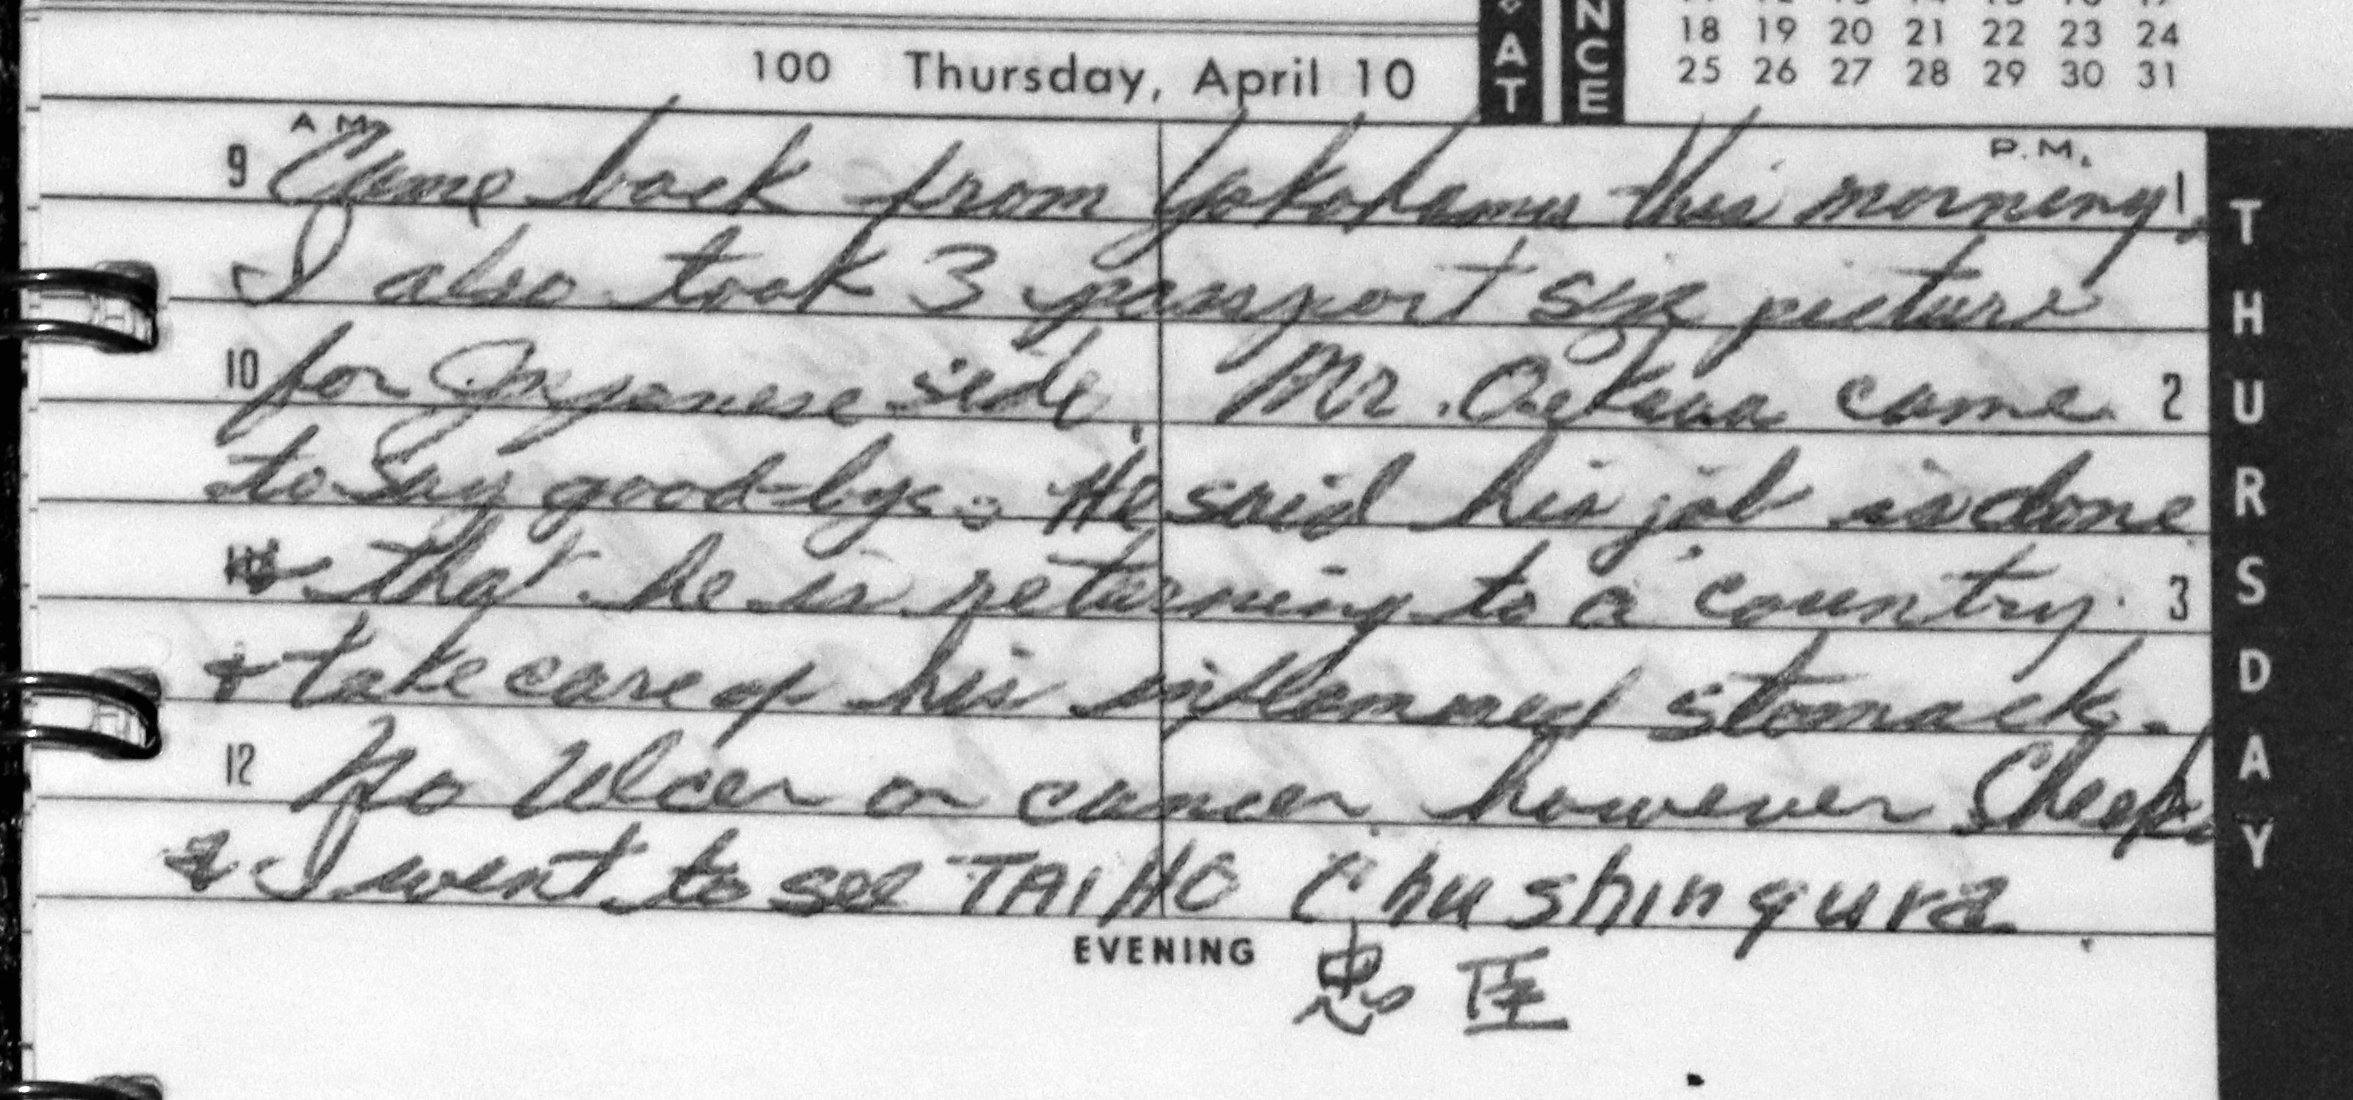 18 19 20 21 22 23 24
25 26 27 28 29 30 31
AT
NCE
100 Thursday, April 10
A.M.
P.M.
9 Came back from Yokohama this morning. 1
I also took 3 passport size picture
10 for Japanese side. Mr. came 2
to say good-bye. He said his job is done
& that he is returning to a country 3
& take care of his inflammed stomach.
12 No Ulcer or cancer however
& I went to see TAIHO Chushingura
EVENING
忠臣
THURSDAY